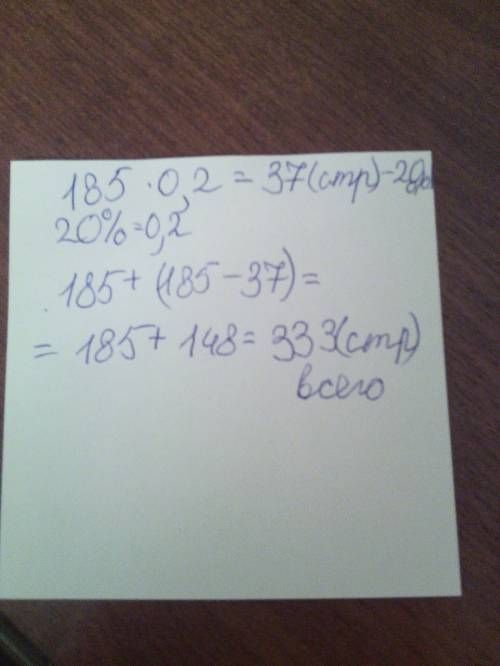 185 · 0,2 = 37(стр)-20%
20%=0,2
185+ (185-37)=
= 185+ 148= 333(стр)
всего